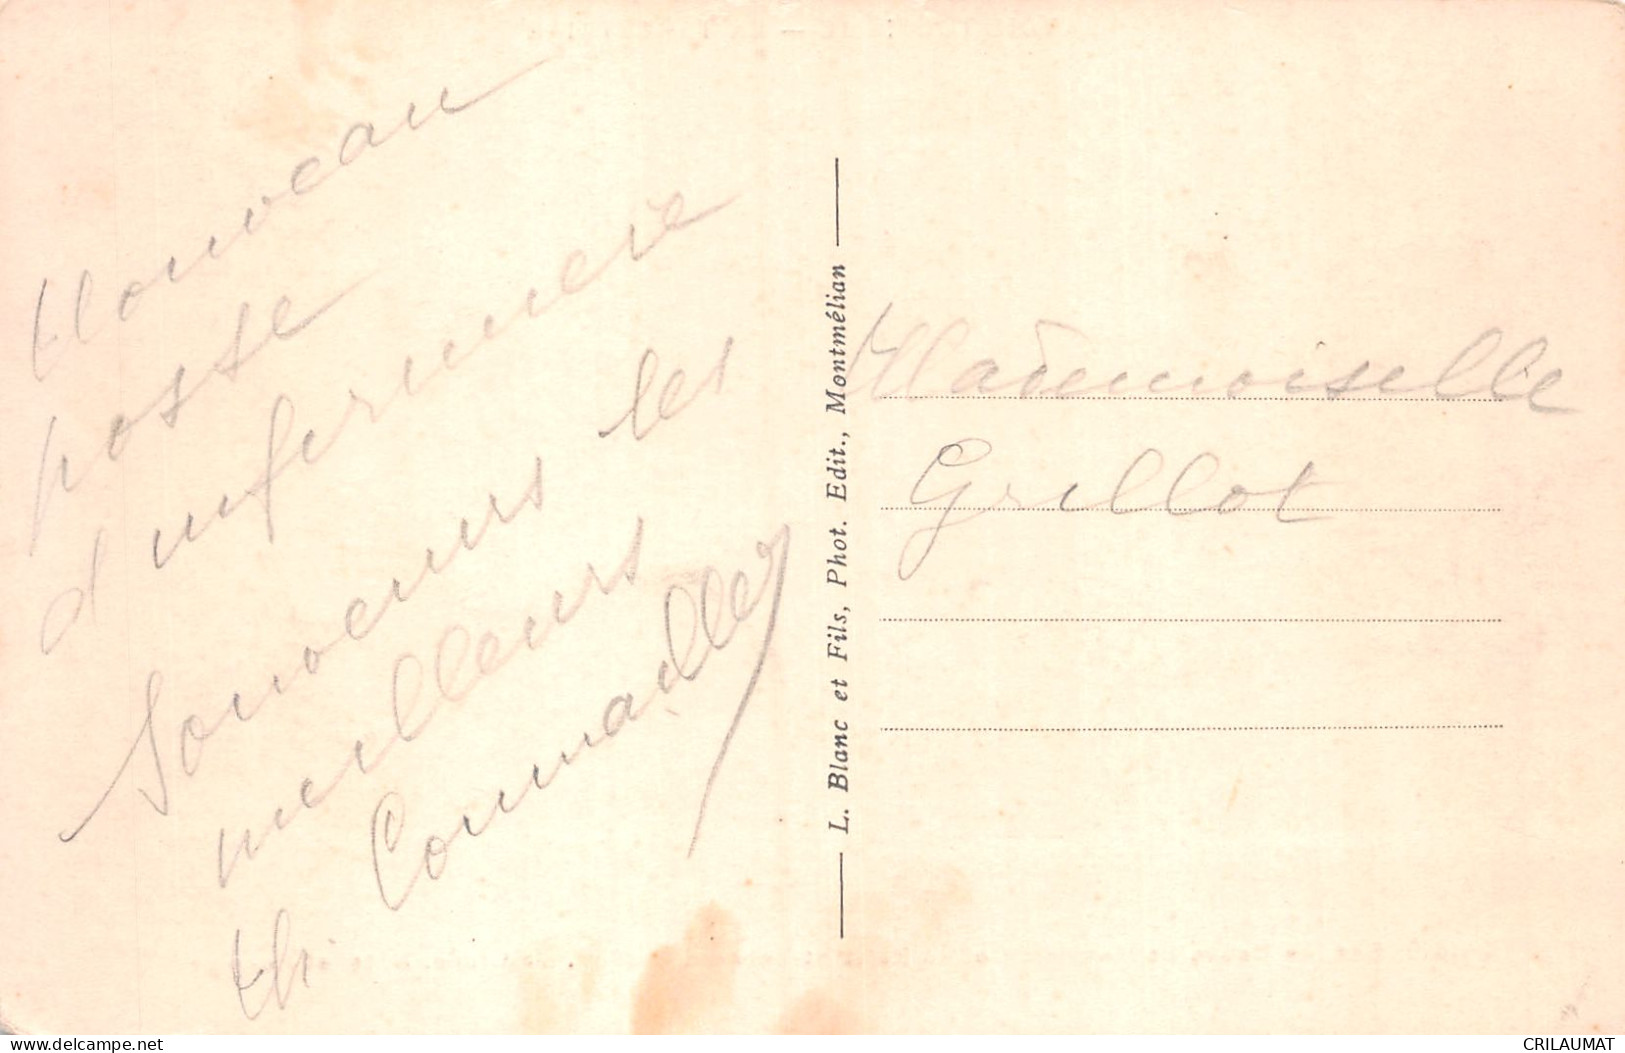 Nouveau
poste
d'infirmière
Souvenirs les
meilleurs
M. Cornuailles
L. Blanc et Fils, Phot. Edit., Montmélian
Mademoiselle
Grillot
www.delcampe.net
CRILAUMAT